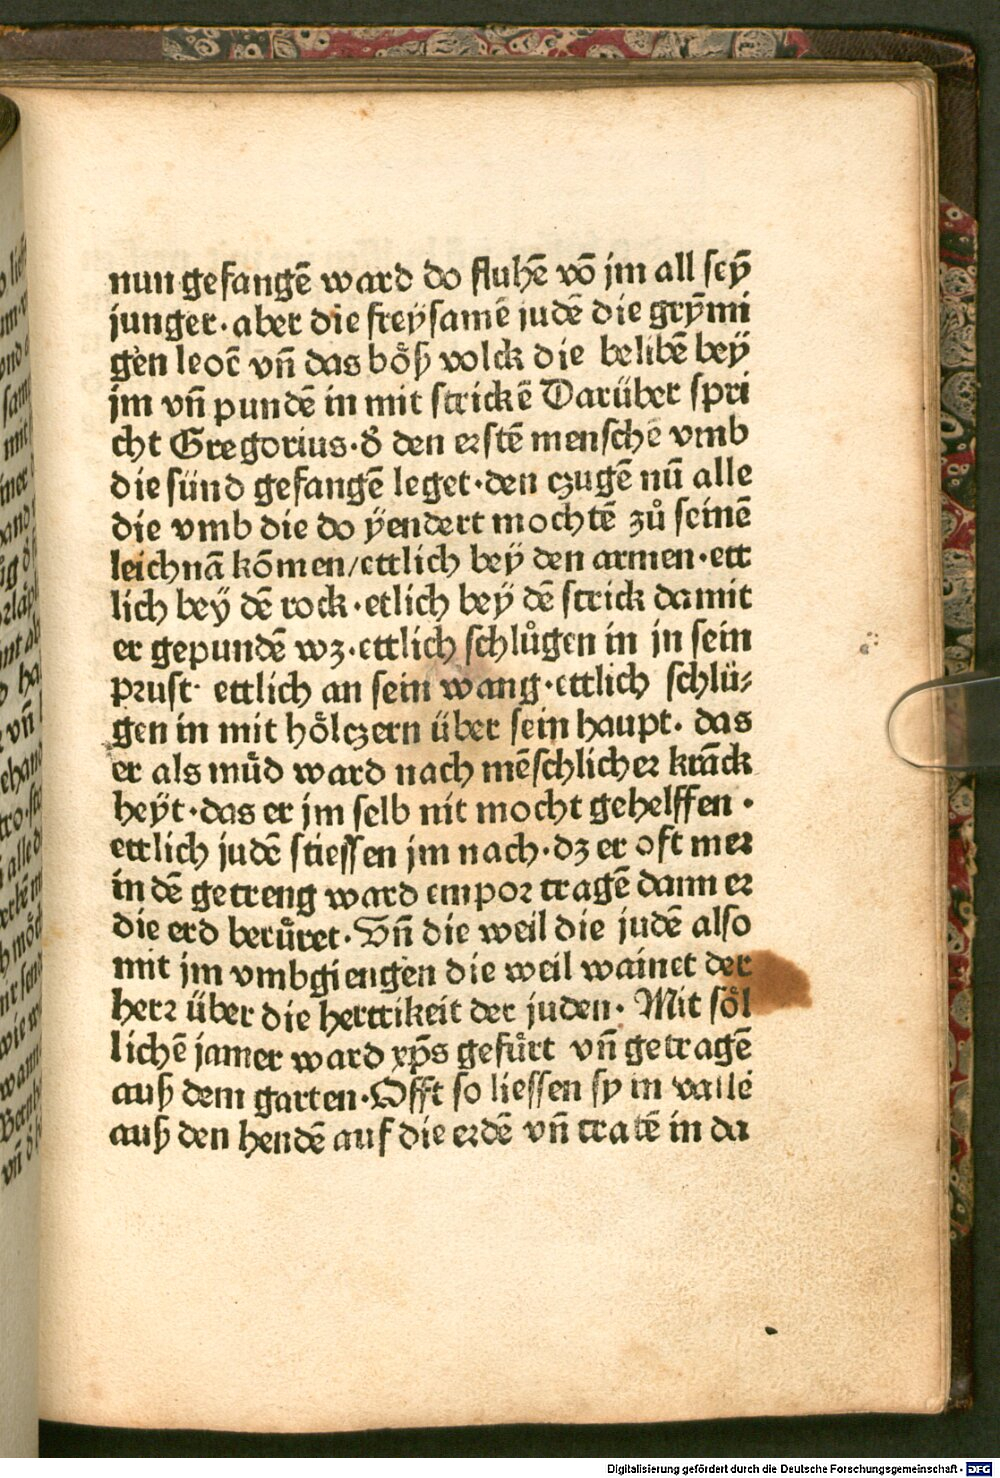 nun gefangē ward do fluhē võ jm all seÿ̄
junger · aber die freÿsamē judē die grÿ̄mi
gen leoē vn̄ das bo̊ß volck die belibē beÿ
jm vn̄ pundē in mit strickē Darüber spri
cht Gregorius · d̄ den erstē menschē vmb
die sünd gefangē leget · den czugē nū alle
die vmb die do ÿendert mochtē zů seinē
leichnā kōmen / ettlich beÿ den armen · ett
lich beÿ dē rock · etlich beÿ dē strick damit
er gepundē wz · ettlich schlůgen in jn sein
prust · ettlich an sein wang · ettlich schlü⸗
gen in mit hölczern über sein haupt · das
er als můd ward nach mēschlicher krāck
heÿt · das er jm selb nit mocht gehelffen ·
ettlich judē stiessen jm nach · dz er oft mer
in dē getreng ward empor tragē dann er
die erd berůret · Vn̄ die weil die judē also
mit jm vmbgiengen die weil wainet der
herr über die herttikeit der juden · Mit söl
lichē jamer ward xp̄s gefůrt vn̄ getragē
auß dem garten · Offt so liessen sy in vallē
auß den hendē auf die erdē vn̄ tratē in da
Digitalisierung gefördert durch die Deutsche Forschungsgemeinschaft - DFG